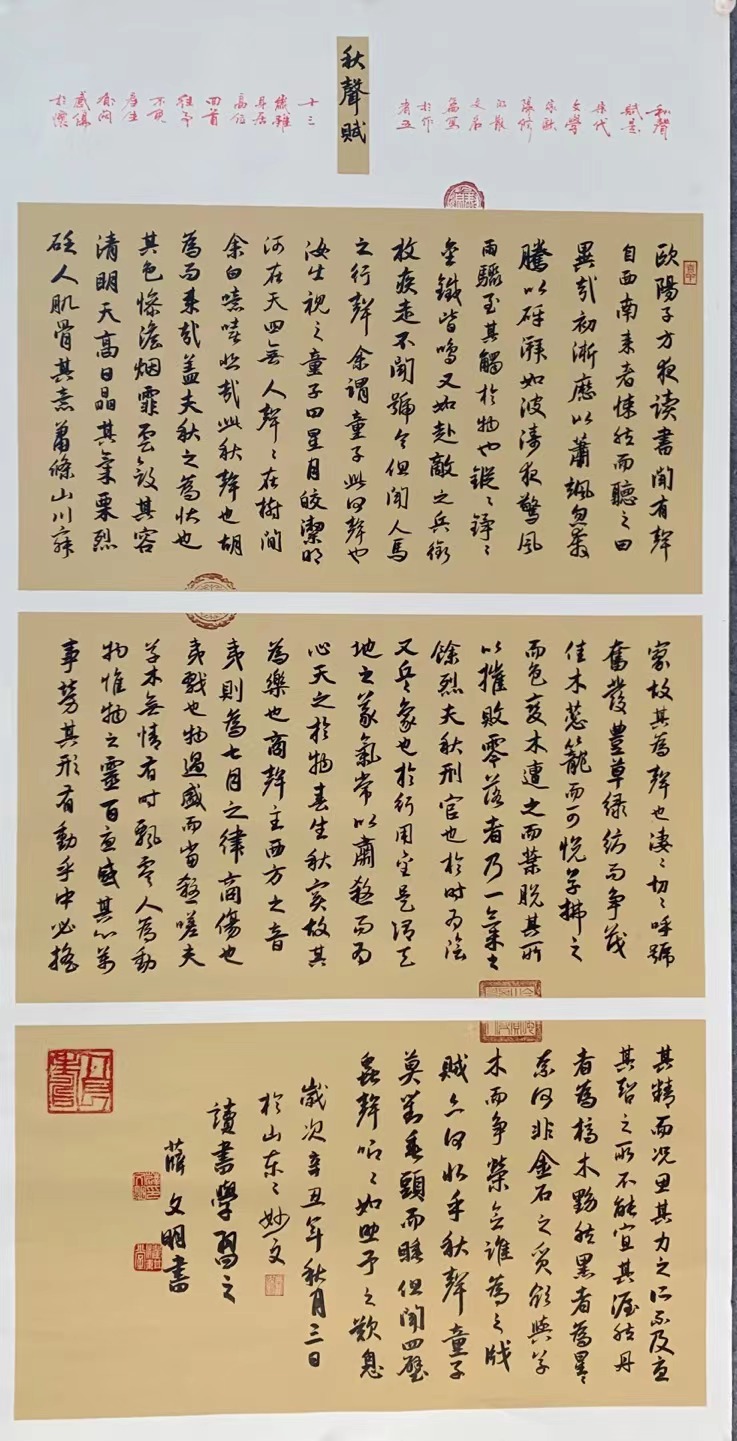 秋聲
賦是
宋代
文學
家歐
陽修
的散
文名
篇寫
於作
者五
秋聲賦
十三
歲雖
身居
高位
回首
往事
不覺
產生
鬱悶
感傷
於懷
歐陽子方夜读書聞有聲
自西南来者悚然而聽之曰
異哉初淅瀝以蕭颯忽奔
騰以砰湃如波濤夜驚風
雨驟至其觸於物也鏦〻錚〻
金鐵皆鳴又如赴敵之兵銜
枚疾走不聞號令但聞人馬
之行聲余謂童子此何聲也
汝出視之童子曰星月皎潔明
河在天四無人聲〻在樹間
余曰噫嘻悲哉此秋聲也胡
為而来哉盖夫秋之為状也
其色惨澹烟霏雲斂其容
清明天高日晶其氣栗烈
砭人肌骨其意蕭條山川寂
寥故其為聲也淒〻切〻呼號
奮發豐草绿縟而争茂
佳木葱籠而可悦草拂之
而色变木遭之而葉脱其所
以摧敗零落者乃一氣之
餘烈夫秋刑官也於時為陰
又兵象也於行用金是谓天
地之義氣常以肅殺而為
心天之於物春生秋實故其
為樂也商聲主西方之音
夷則為七月之律商傷也
夷戮也物過盛而當殺嗟夫
草木無情有時飄零人為動
物惟物之靈百憂感其心萬
事勞其形有動乎中必摇
其精而况思其力之所不及憂
其智之所不能宜其渥然丹
者為槁木黟然黑者為星〻
奈何非金石之質欲與草
木而争榮念誰為之戕
賊亦何恨乎秋聲童子
莫對垂頭而睡但聞四壁
蟲聲唧〻如助予之歎息
歲次辛丑年秋月三日
於山东〻妙文
讀書學習之
薛文明書